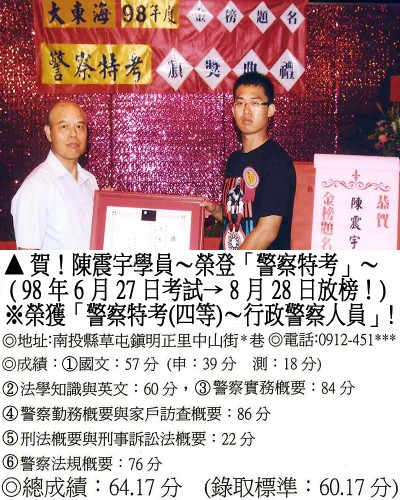 大東海98年度 金榜題名
警察特考 頒獎典禮
恭賀
陳震宇
金榜題名
▲賀！陳震宇學員～榮登「警察特考」～
(98年6月27日考試→8月28日放榜！)
※榮獲「警察特考(四等)～行政警察人員」!
◎地址:南投縣草屯鎮明正里中山街*巷 ◎電話:0912-451***
◎成績：①國文：57分 (申：39分 測：18分)
②法學知識與英文：60分，③警察實務概要：84分
④警察勤務概要與家戶訪查概要：86分
⑤刑法概要與刑事訴訟法概要：22分
⑥警察法規概要：76分
◎總成績：64.17分 (錄取標準：60.17分)